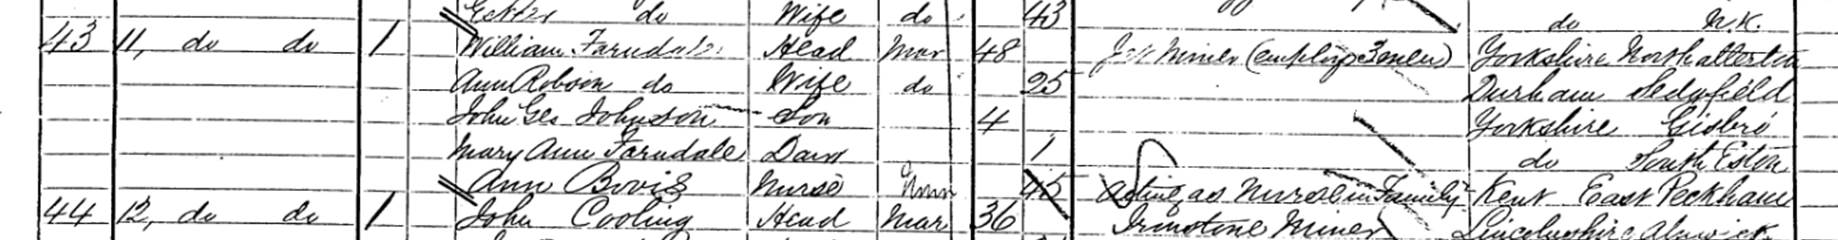 Wife do 43 do N.K.
43 11, do do 1 William Farndale Head Mar 48 Miner (employs 3 men) Yorkshire Northallerton
Ann Robson do Wife do 25 Durham Sedgfield
John Geo Johnson Son 4 Yorkshire Gisbro
Mary Ann Farndale Daur 1 do South Eston
Ann Bovis Nurse 45 Acting as Nurse in Family Kent East Peckham
44 12, do do 1 John Cooling Head Mar 36 Ironstone Miner Lincolnshire